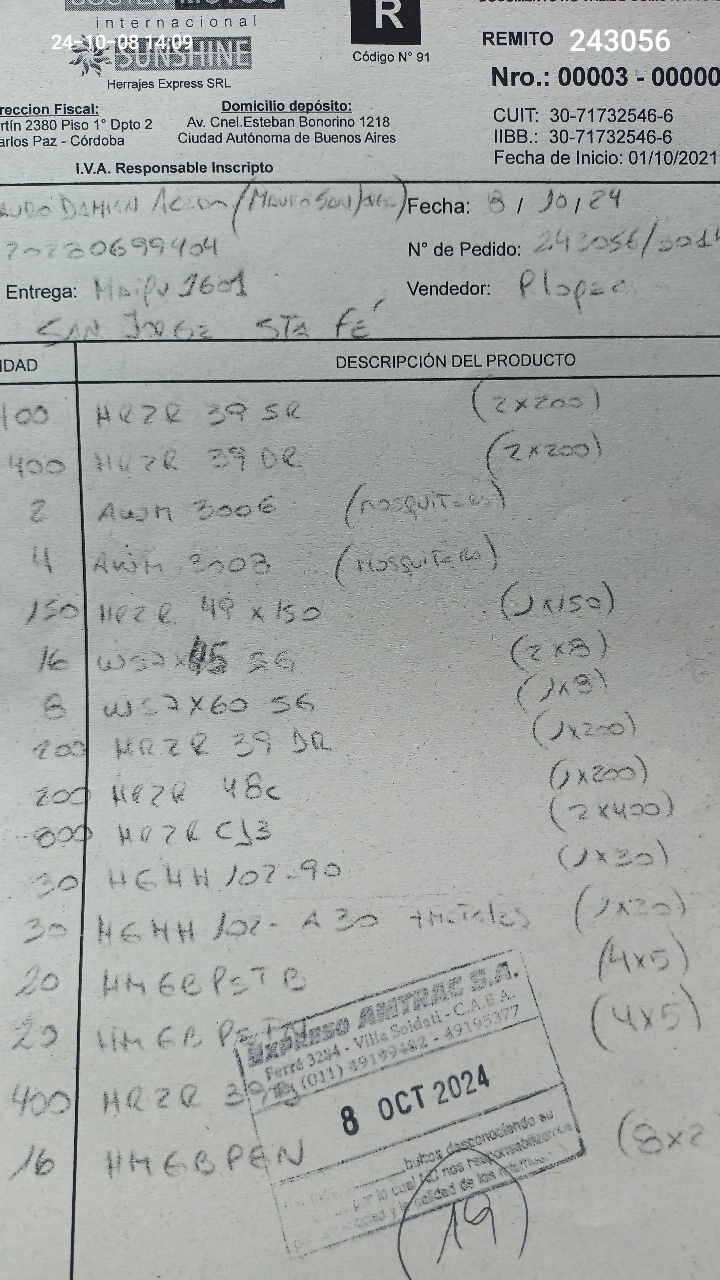 internacional
24-10-08 14:09
SUNSHINE
Herrajes Express SRL
R
Código N° 91
REMITO 243056
Nro.: 00003 - 00000
reccion Fiscal:
rtín 2380 Piso 1° Dpto 2
arlos Paz - Córdoba
Domicilio depósito:
Av. Cnel.Esteban Bonorino 1218
Ciudad Autónoma de Buenos Aires
CUIT: 30-71732546-6
IIBB.: 30-71732546-6
Fecha de Inicio: 01/10/2021
I.V.A. Responsable Inscripto
DAMIEN
Fecha: 8 / 10 / 24
N° de Pedido: 243056/301
Entrega: Maipu 1601
Vendedor: Plopez
SAN JORGE STA FÉ
IDAD DESCRIPCIÓN DEL PRODUCTO
400 HRZR 39 SR (2x200)
400 HRZR 39 DR (2x200)
2 AWM 3006 (MOSQUITERO)
4 AWM 3003 (MOSQUITERO)
150 HRZR 49 x 150 (1x150)
16 WS7x45 SG (2x8)
8 WS7x60 SG (1x8)
200 HRZR 39 DR (1x200)
200 HRZR 48c (1x200)
800 HRZR C13 (2x400)
30 HGMH 102-90 (1x30)
30 HGMH 102-A30 (1x30)
20 HMGBPSTB (4x5)
20 HMGBPSTN (4x5)
400 HRZR
16 HMGBPEN (8x2
EXPRESO AMTRAC S.A.
Ferré 3284 - Villa Soldati - C.A.B.A.
(011) 49199482 - 49195377
8 OCT 2024
bultos desconociendo su
por lo cual no nos responsabilizamos
y la calidad de los
19